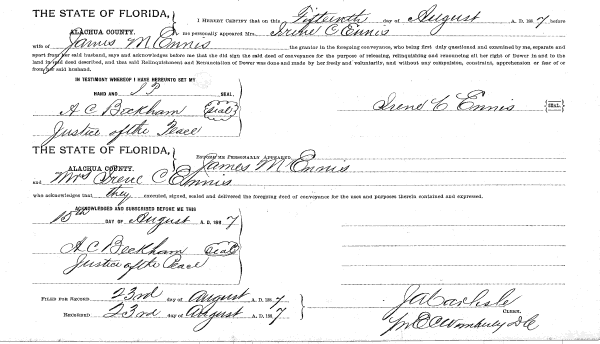 THE STATE OF FLORIDA,
ALACHUA COUNTY.
I HEREBY CERTIFY that on this Fifteenth day of August A. D. 188 7 before
me personally appeared Mrs. Irene C Ennis
wife of James M Ennis the grantor in the foregoing conveyance, who being first duly questioned and examined by me, separate and
apart from her said husband, says and acknowledges before me that she did sign the said deed of conveyance for the purpose of releasing, relinquishing and renouncing all her right of Dower in and to the
land in said deed described, and that said Relinquishment and Renunciation of Dower was done and made by her freely and voluntarily, and without any compulsion, constraint, apprehension or fear of or
from her said husband.
IN TESTIMONY WHEREOF I HAVE HEREUNTO SET MY
HAND AND SEAL.
A C Beckham Seal
Justice of the Peace
Irene C Ennis SEAL.
THE STATE OF FLORIDA,
ALACHUA COUNTY.
BEFORE ME PERSONALLY APPEARED
James M Ennis
and Mrs Irene C Ennis
who acknowledges that they executed, signed, sealed and delivered the foregoing deed of conveyance for the uses and purposes therein contained and expressed.
ACKNOWLEDGED AND SUBSCRIBED BEFORE ME THIS
15th DAY OF August A. D. 188 7
A C Beckham Seal
Justice of the Peace
FILED FOR RECORD 23rd day of August A. D. 188 7
RECORDED 23rd day of August A. D. 188 7
J A Carlisle
CLERK.
pr E C Wimberly D C